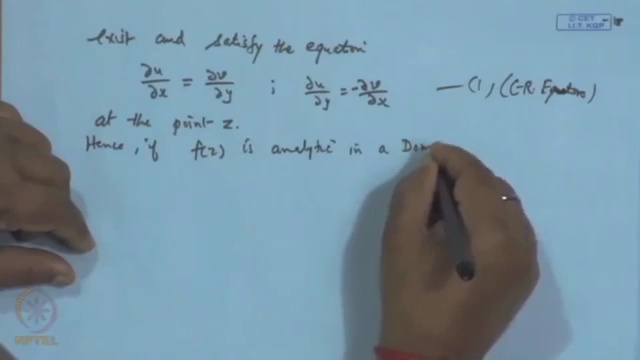 © CET
I.I.T. KGP
exist and satisfy the equation
∂u/∂x = ∂v/∂y ; ∂u/∂y = -∂v/∂x — (1) (C-R. Equations)
at the point z.
Hence, if f(z) is analytic in a Dom
NPTEL